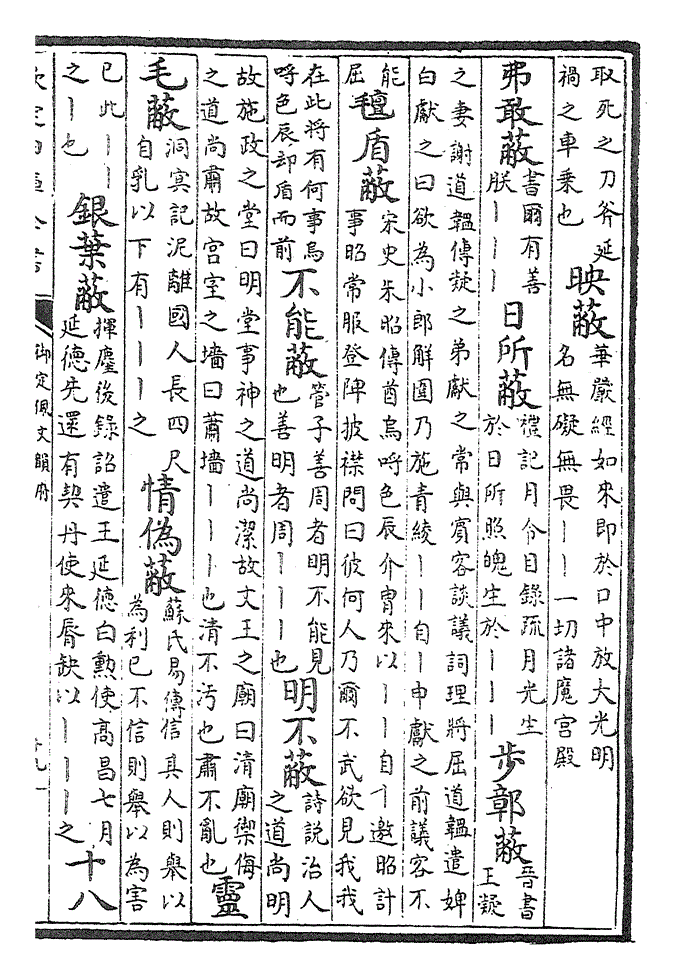 取死之刀斧延
禍之車乘也
映蔽
華嚴經如來即於口中放大光明
名無礙無畏丨丨一切諸魔宮殿
弗敢蔽
書爾有善
朕丨丨丨
日所蔽
禮記月令目錄疏月光生
於日所照魄生於丨丨丨
步鄣蔽
晉書
王凝
之妻謝道韞傳凝之弟獻之常與賓客談議詞理將屈道韞遣婢
白獻之曰欲為小郎解圍乃施青綾丨丨自丨申獻之前議客不
能
屈
氊盾蔽
宋史朱昭傳酋烏呼色辰介胄來以丨丨自丨邀昭計
事昭常服登陣披襟問曰彼何人乃爾不武欲見我我
在此將有何事烏
呼色辰却盾而前
不能蔽
管子善周者明不能見
也善明者周丨丨丨也
明不蔽
詩說治人
之道尚明
故施政之堂曰明堂事神之道尚潔故文王之廟曰清廟禦侮
之道尚肅故宮室之墻曰蕭墻丨丨丨也清不汚也肅不亂也
靈
毛蔽
洞冥記泥離國人長四尺
自乳以下有丨丨丨之
情偽蔽
蘇氏易傳信其人則舉以
為利已不信則舉以為害
已此丨丨
之丨也
銀葉蔽
揮麈後錄詔遣王延德白勲使高昌七月
延德先還有契丹使來脣缺以丨丨丨之
十八
御定佩文韻府